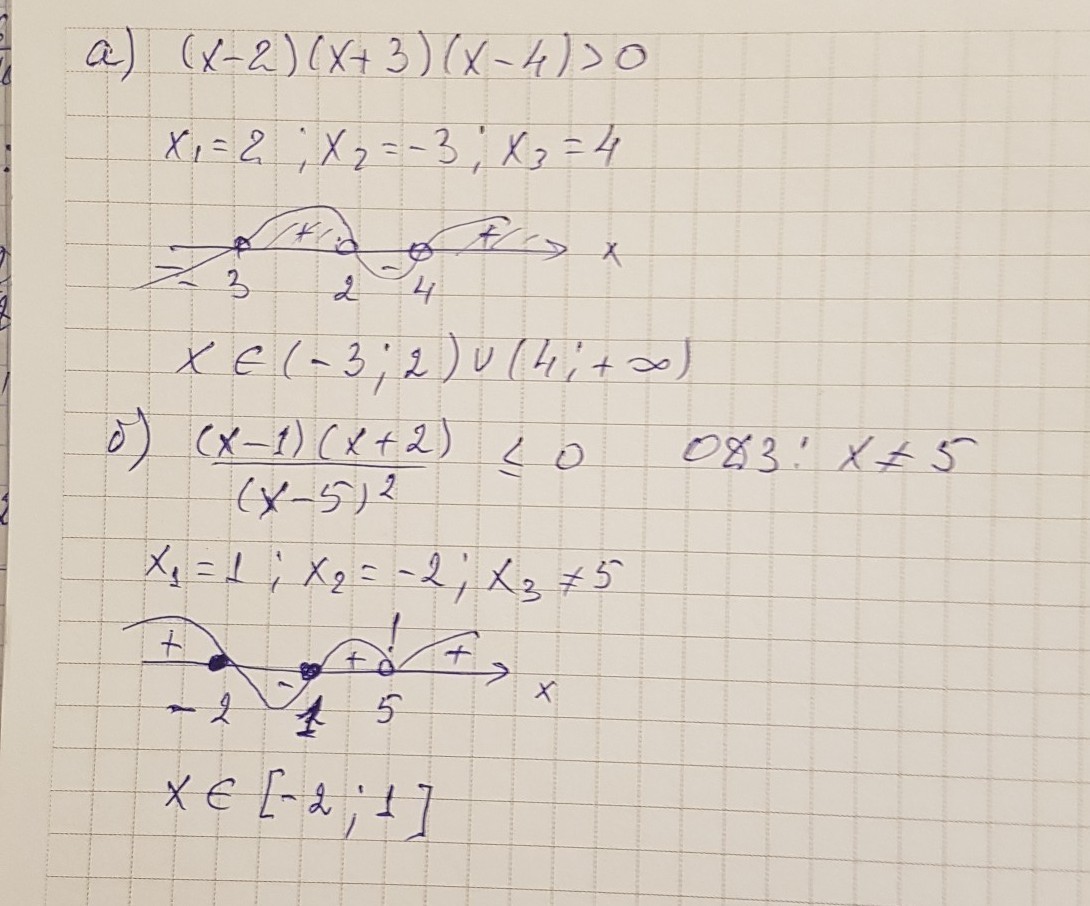 а) (x-2)(x+3)(x-4)>0
x₁=2 ; x₂=-3 ; x₃=4
- + - + x
- 3 2 4
x ∈ (-3; 2) ∪ (4; +∞)
б) (x-1)(x+2) / (x-5)² ≤ 0 ОДЗ: x≠5
x₁=1 ; x₂=-2; x₃≠5
+ - + ! + x
-2 1 5
x ∈ [-2; 1]